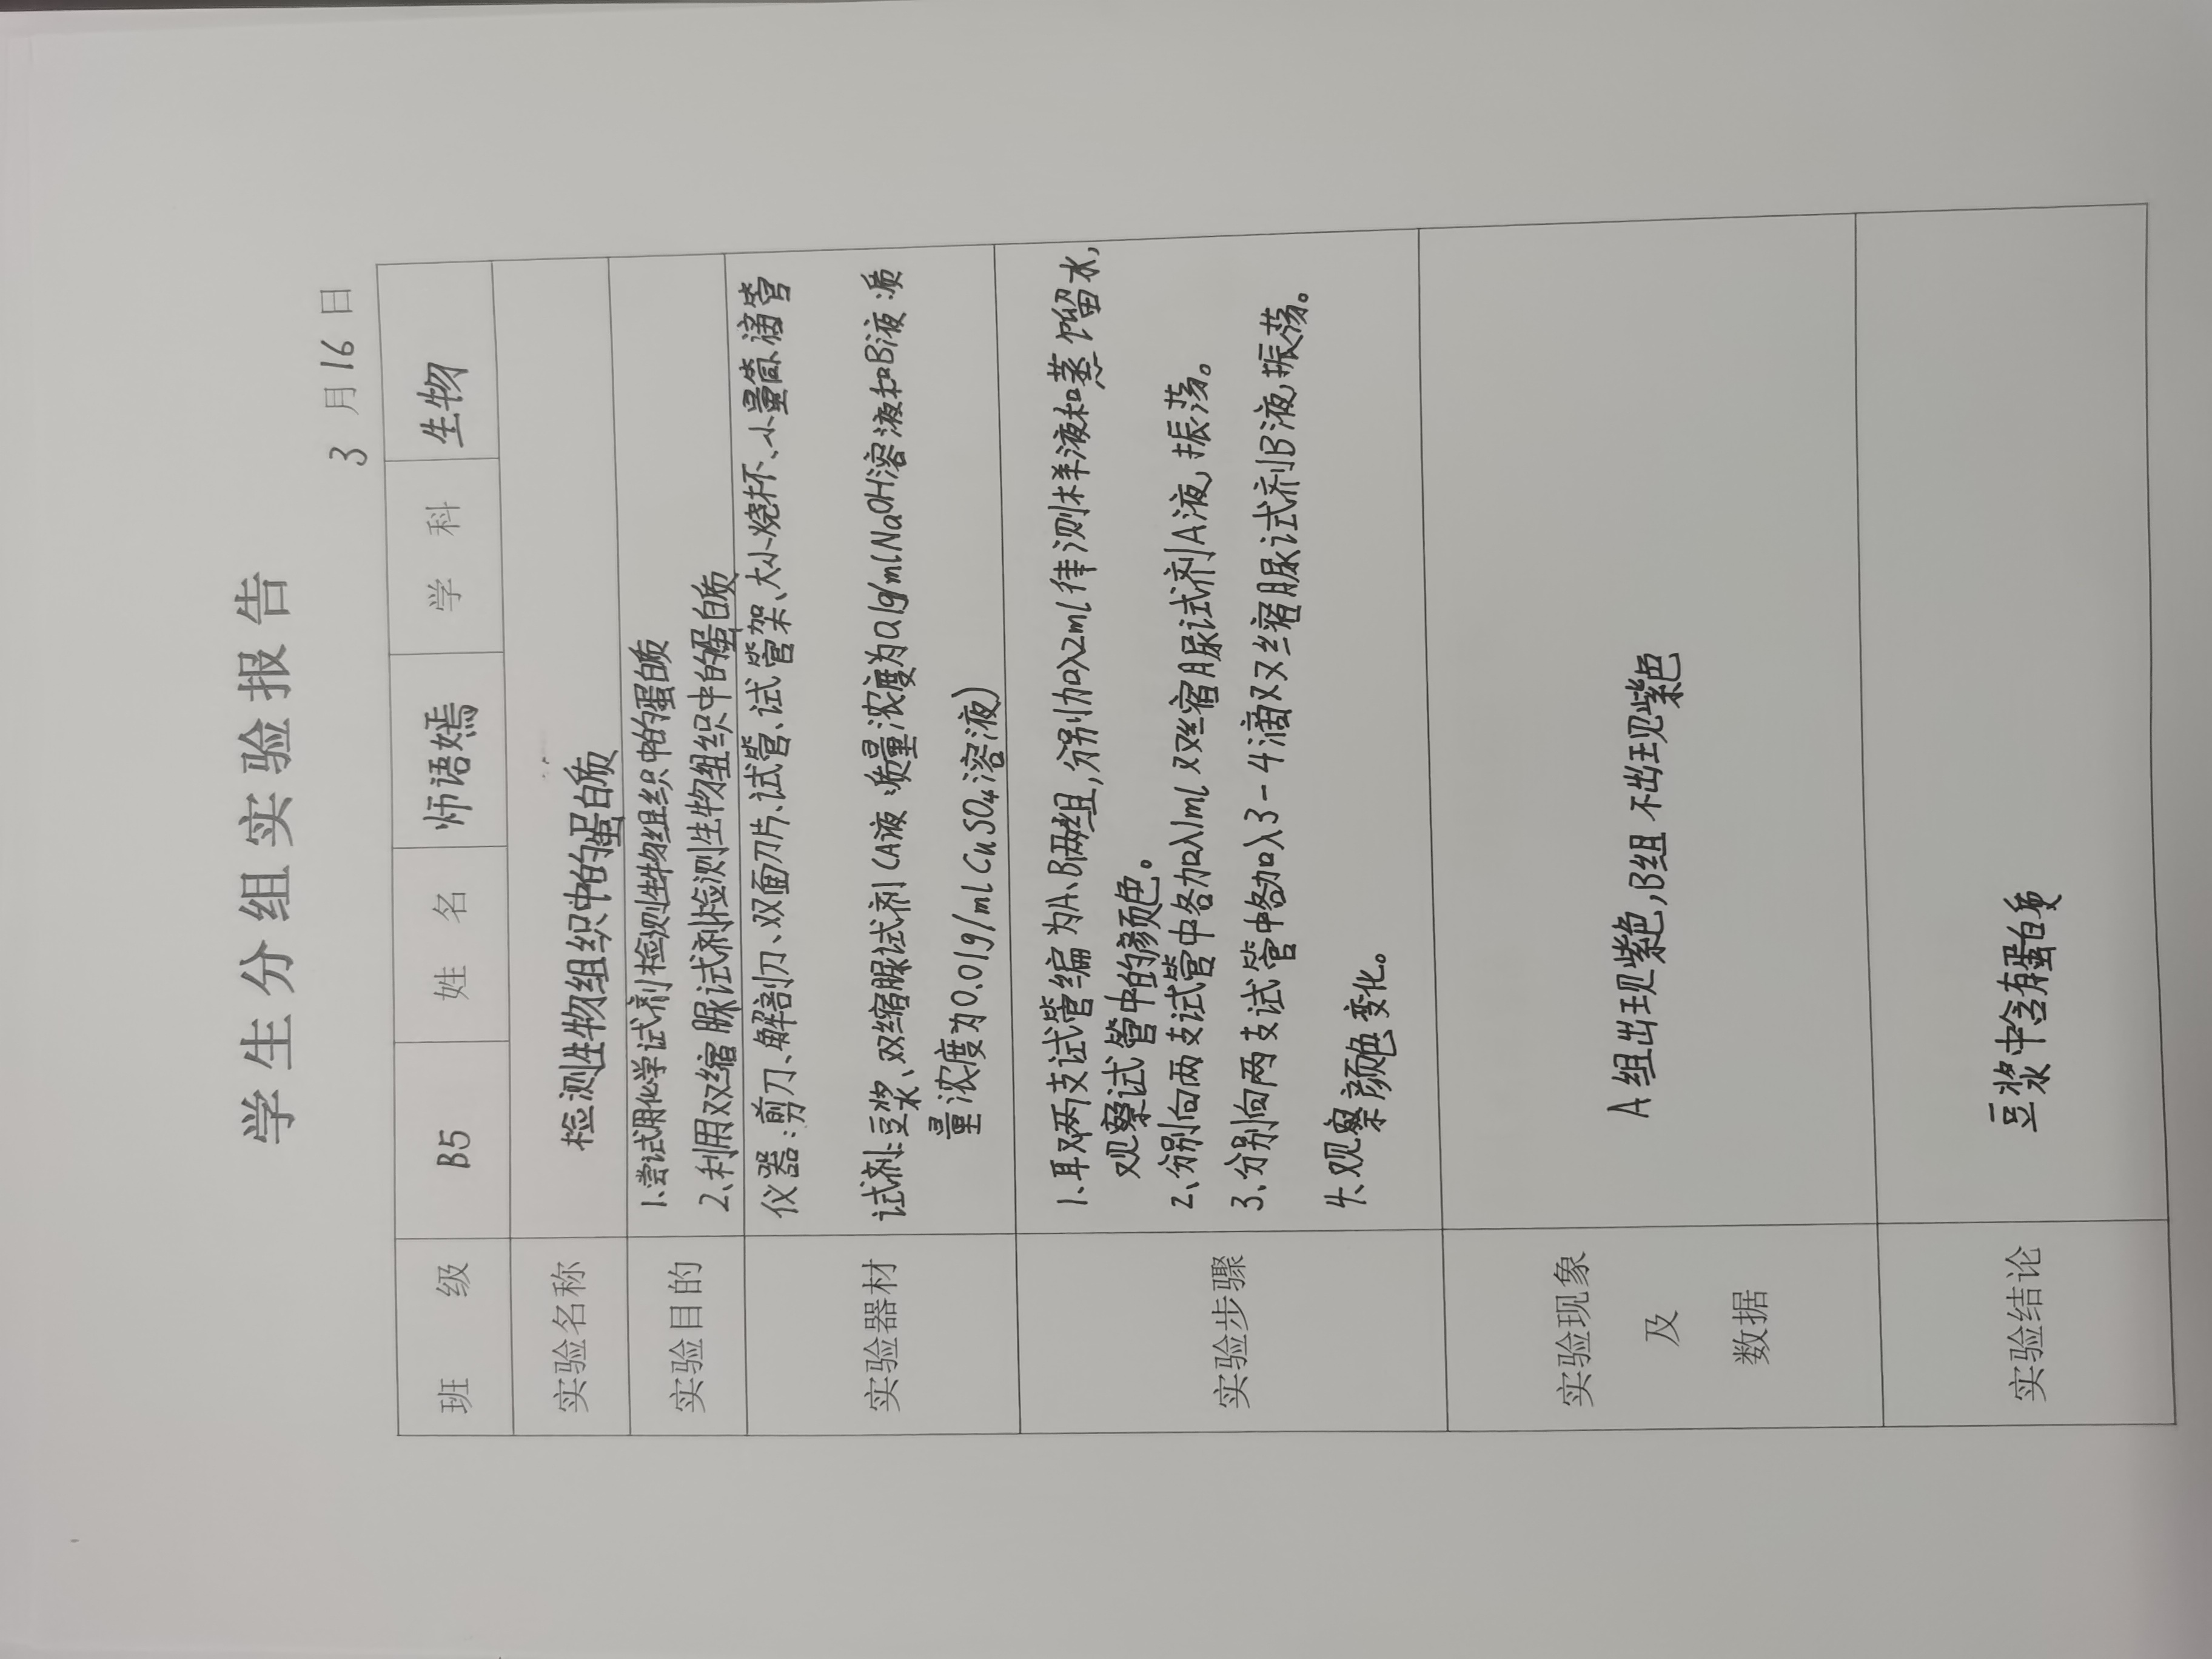 学生分组实验报告
3 月 16 日
班 级 B5 姓 名 师语嫣 学 科 生物
实验名称 检测生物组织中的蛋白质
实验目的
1、尝试用化学试剂检测生物组织中的蛋白质
2、利用双缩脲试剂检测生物组织中的蛋白质
实验器材
仪器:剪刀、解剖刀、双面刀片、试管、试管架、大小烧杯、小量筒、滴管
试剂:豆浆、双缩脲试剂(A液:质量浓度为0.1g/mlNaOH溶液和B液:质
量浓度为0.01g/mlCuSO₄溶液)
实验步骤
1、取两支试管编为A、B两组,分别加入2ml待测样液和蒸馏水,
观察试管中的颜色。
2、分别向两支试管中各加入1ml双缩脲试剂A液,振荡。
3、分别向两支试管中各加入3-4滴双缩脲试剂B液,振荡。
4、观察颜色变化。
实验现象
及
数据
A组出现紫色,B组不出现紫色
实验结论 豆浆中含有蛋白质